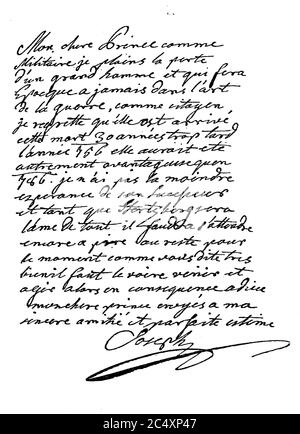 Mon chere Prince comme
Militaire je plains la perte
d'un grand homme et qui fera
Epoque a jamais dans l'art
de la guerre, comme citoyen
je regrette qu'elle est arrivé
cette mort 30 années trop tard
l'année 756 elle aurait eté
autrement avantageuse qu'en
786. je n'ai pas la moindre
esperance de son Successeur
et tant que Hertzberg sera
l'ame de tout il faudra s'attendre
encore a pire au reste pour
le moment comme vous dite tres
bien il faut le voire venir et
agir alors en consequence adieu
mon chere prince croyés a ma
sincere amitié et parfaite estime
Joseph
alamy
Image ID: 2C4XP47
www.alamy.com